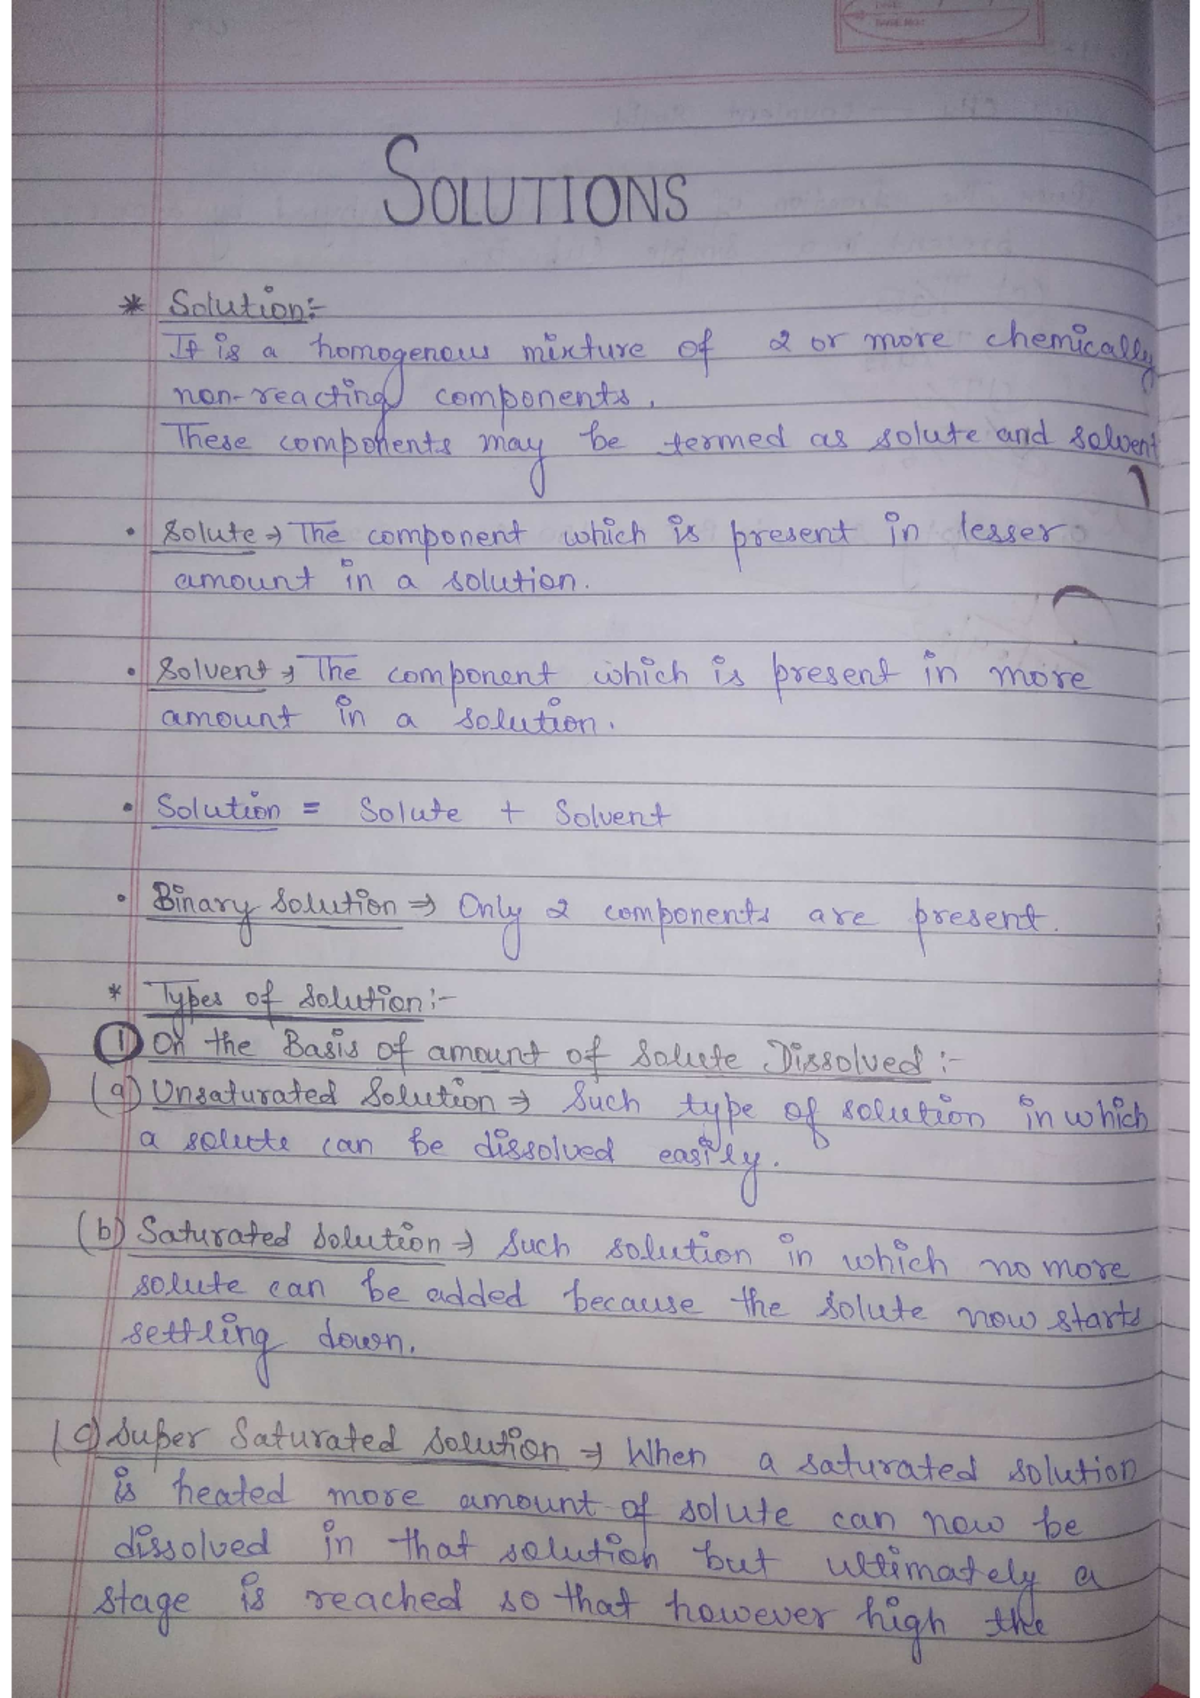 SOLUTIONS
* Solution:-
It is a homogenous mixture of 2 or more chemically
non-reacting components.
These components may be termed as solute and solvent
• Solute → The component which is present in lesser
amount in a solution.
• Solvent → The component which is present in more
amount in a solution.
• Solution = Solute + Solvent
• Binary Solution ⇒ Only 2 components are present.
* Types of Solution:-
① On the Basis of amount of Solute Dissolved :-
(a) Unsaturated Solution ⇒ Such type of solution in which
a solute can be dissolved easily.
(b) Saturated Solution ⇒ Such solution in which no more
solute can be added because the solute now starts
settling down.
(c) Super Saturated Solution ⇒ When a saturated solution
is heated more amount of solute can now be
dissolved in that solution but ultimately a
stage is reached so that however high the